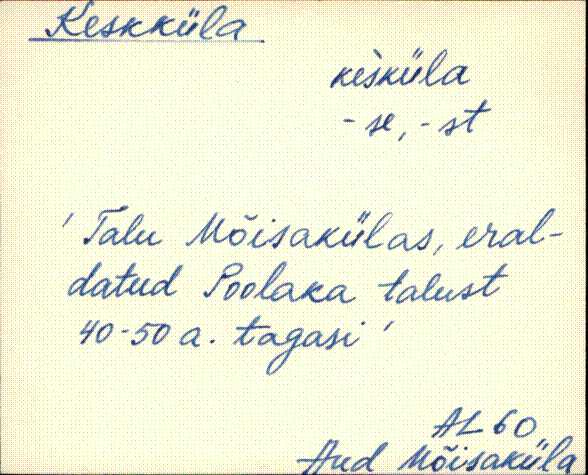 Keskküla
kèsküla
-se, -st
'Talu Mõisakülas, eral-
datud Poolaka talust
40-50 a. tagasi'
AL 60
Aud Mõisaküla